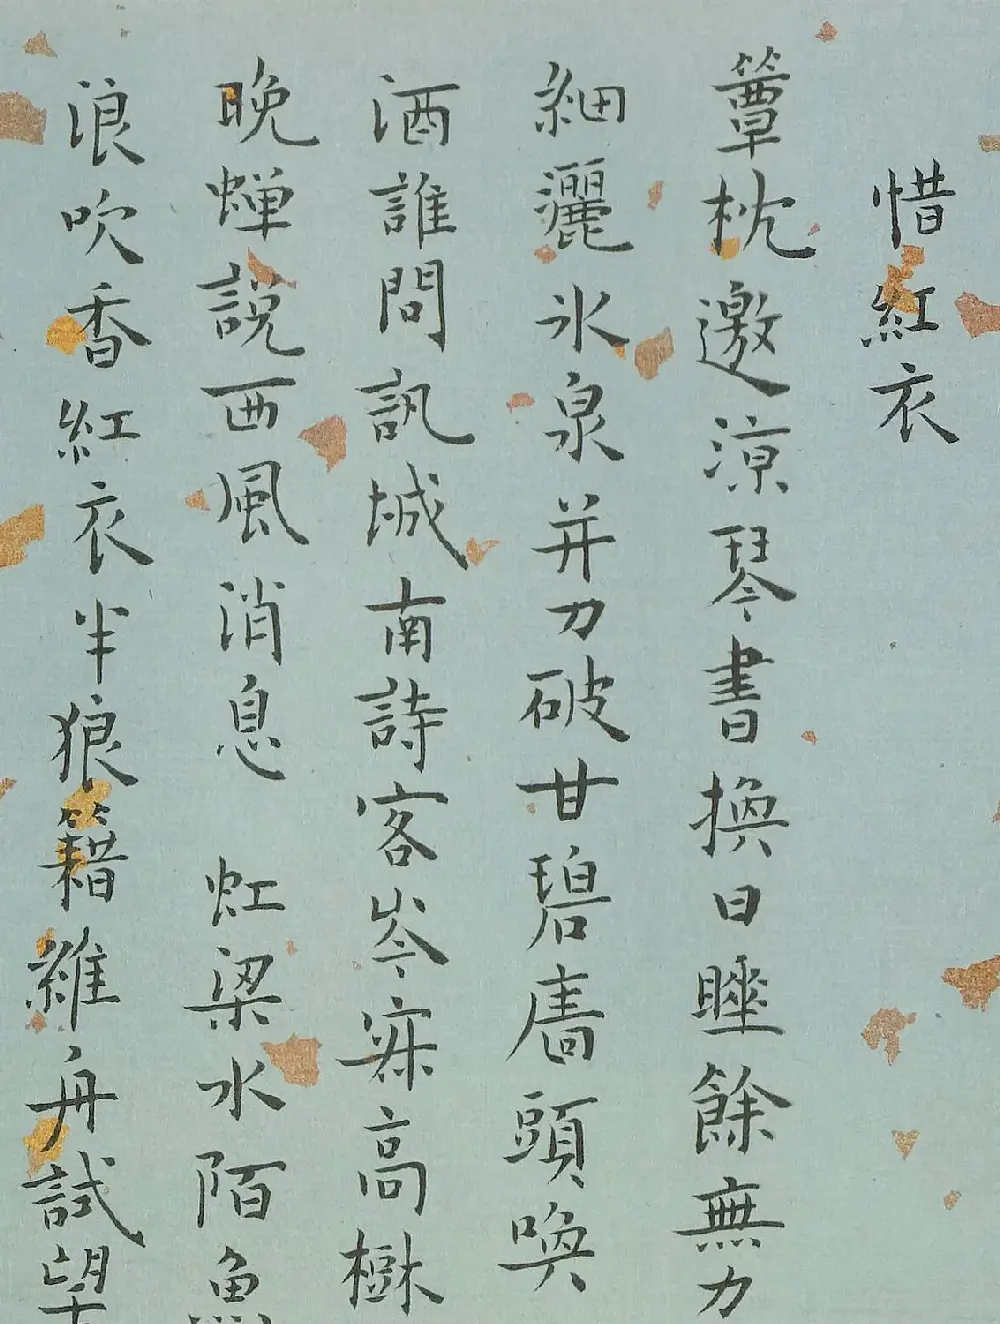 惜紅衣
簟枕邀涼琴書換日睡餘無力
細灑冰泉并刀破甘碧牆頭喚
酒誰問訊城南詩客岑寂高樹
晚蟬說西風消息 虹梁水陌魚
浪吹香紅衣半狼籍維舟試望